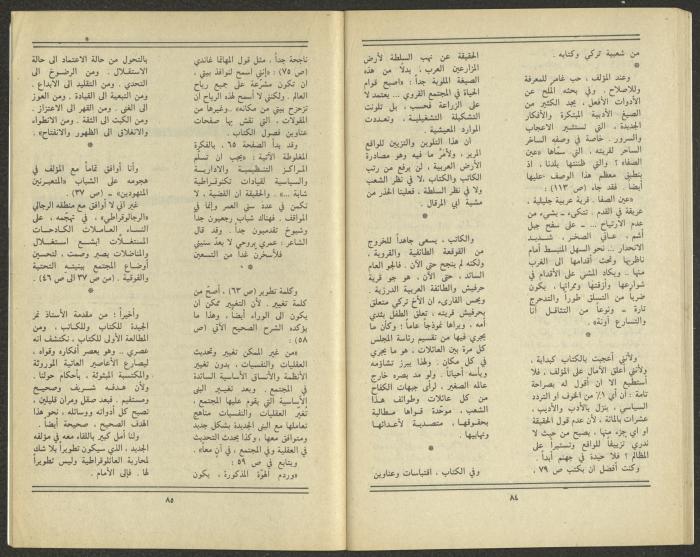 من شعبية تركي وكتابه .
*
وعند المؤلف ، حب غامر للمعرفة
وللاصلاح . وفي بحثه الملح عن
الأدوات الأفعل ، يجد الكثير من
الصيغ الأدبية المبتكرة والأفكار
الجديدة ، التي تستثير الاعجاب
والسرور . خاصة في وصفه الرائع
الساخر لقريته ، التي سمّاها «عين
الصفا» ؟ والتي ظننتها بلدنا ، اذ
ينطبق معظم هذا الوصف عليها
أيضا . فقد جاء (ص ١١٣) :
«عين الصفا . قرية عربية جليلية ،
عريقة في القدم . تتكىء ـ بشيء من
عدم الارتياح ... ـ على سفح جبل
أشم ، عاتي الصخر ، شديد
الانحدار ... نحو السهل المنبسط أمام
ناظريها وتحت أقدامها الى الغرب
منها .. ويكاد المشي على الأقدام في
شوارعها وأزقتها وممراتها ، يكون
ضربا من التسلق طورا والتدحرج
تارة ـ ونوعاً من التثاقل آنا
والتسارع آونة» .
*
ولأنني أعجبت بالكتاب كبداية ،
ولأنني أعلق الآمال على المؤلف ، فلا
أستطيع الا ان أقول له بصراحة
تامة : أن أي ١٪ من الخوف او التردد
السياسي ، ينزل بالأدب والأديب ،
عشرات بالمائة ، لأن عدم قول الحقيقة
او أي جزء منها ، يصبح من حيث لا
ندري تزييفاً للواقع وتستيراً على
المظالم ؟ فلا حيدة في جهنم أبداً .
وكنت أفضل ان يكتب ص ٧٩ ،
الحقيقة عن نهب السلطة لأرض
المزارعين العرب ، بدلاً من هذه
الصيغة الملوية جداً : «أصبح قوام
الحياة في المجتمع القروي ... يعتمد لا
على الزراعة فحسب ، بل تلونت
التشكيلة التشغيلية ، وتعددت
الموارد المعيشية .
ان هذا التلوين والتزيين للواقع
المرير ، ولأمرّ ما فيه وهو مصادرة
الأرض العربية ، لن يرفع من رتب
الكاتب والكتاب ، لا في نظر الشعب
ولا في نظر السلطة ، فعلينا الحذر من
مشية أبي المرقال .
*
والكاتب ، يسعى جاهداً للخروج
من القوقعة الطائفية والقروية ،
ولكنه لم ينجح حتى الآن . فالجو العام
السائد ، حتى الآن ، هو جو قرية
حرفيش والطائفة العربية الدرزية .
ويحس القارىء ان الأخ تركي متعلق
بحرفيش قريته ، تعلق الطفل بثدي
أمه ، ويراها نموذجاً عاماً ؛ وكأن ما
يجري فيها من تقسيم رئاسة المجلس
كل مرة بين العائلات ، هو ما يجري
في كل مكان . ولهذا يبرز تشاؤمه
ويأسه أحياناً . ولو مد بصره خارج
عالمه الصغير ، لرأى جبهات الكفاح
من كل عائلات وطوائف هذا
الشعب ، موحّدة قواها مطالبة
بحقوقها ، متصدية لأعدائها
ونهابيها .
*
وفي الكتاب ، اقتباسات وعناوين
٨٤
ناجحة جداً ، مثل قول المهاتما غاندي
(ص ٧٥) : «إنني اسمح لنوافذ بيتي
ان تكون مشرعة على جميع رياح
العالم . ولكنني لا أسمح لهذه الرياح ان
تزحزح بيتي من مكانه» .. وغيرها من
المقولات ، التي نقش بها صفحات
عناوين فصول الكتاب .
وقد بدأ الصفحة ٦٥ ، بالفكرة
المغلوطة الآتية : «يجب ان تسلّم
المراكز التنظيمية والادارية
والسياسية لقيادات تكنوقراطية
شابة ...» .. والحقيقة ان القضية ، لا
تكمن في عدد سني العمر وإنما في
المواقف . فهناك شباب رجعيون جداً
وشيوخ تقدميون جداً . وقد قال
الشاعر : عمري بروحي لا بعدّ سنيني
فلأسخرن غداً من التسعين
*
وكلمة تطوير (ص ٦٣) ، أصحّ من
كلمة تغيير . لأن التغيير ممكن ان
يكون الى الوراء أيضا ، وهذا ما
يؤكده الشرح الصحيح الآتي (ص
٥٨) :
«من غير الممكن تغيير وتحديث
العقليات والنفسيات ، بدون تغيير
الأنظمة والأنساق الأساسية السائدة
في المجتمع . وبعد تغيير البنى
الأساسية التي يقوم عليها المجتمع ،
تُغيّر العقليات والنفسيات مناهج
تعاملها مع البنى الجديدة بشكل جديد
ومتوافق معها ، وكذا يحدث التحديث
في العقلية وفي المجتمع ، في آن معاً» .
ويتابع في ص ٥٩ :
«وردم الهوّة المذكورة ، يكون
بالتحول من حالة الاعتماد الى حالة
الاستقلال . ومن الرضوخ الى
التحدي . ومن التقليد الى الأبداع .
ومن التبعية الى القيادة . ومن العوز
الى الغنى . ومن القهر الى الاعتزاز .
ومن الكبت الى الثقة . ومن الانطواء
والانغلاق الى الظهور والانفتاح» .
*
وأنا أوافق تماماً مع المؤلف في
هجومه على الشباب «المتعبرنين
المتهودين» ـ (ص ٣٧) .
غير اني لا أوافق مع منطقه الرجالي
«الرجالوقراطي» ، في تهجّمه ، على
النساء العاملات الكادحات
المستغلّات ابشع استغلال
والمناضلات بصبر وصمت ، لتحسين
أوضاع المجتمع ببنيتيه التحتية
والفوقية . (من ص ٣٧ الى ص ٤٦) .
*
وأخيراً ؛ من مقدمة الأستاذ نمر
الجيدة للكتاب وللكاتب ، ومن
المطالعة الأولى للكتاب ، نكتشف انه
عصري .. وهو يعصر أفكاره وقواه ،
ليصارع الأعاصير العاتية الموروثة
والمكتسبة المبثوثة ، بأحكام حولنا .
ولأن هدفه شريف وصحيح
ومستقيم . فبعد صقل ومران قليلين ،
تصبح كل أدواته ووسائله ، نحو هذا
الهدف الصحيح ، صحيحة أيضاً .
ولنا أمل كبير باللقاء معه في مؤلفه
الجديد ، الذي سيكون تطويراً بلا شك
لمحاربة العائلوقراطية وليس تطويراً
لها . فإلى الأمام .
٨٥